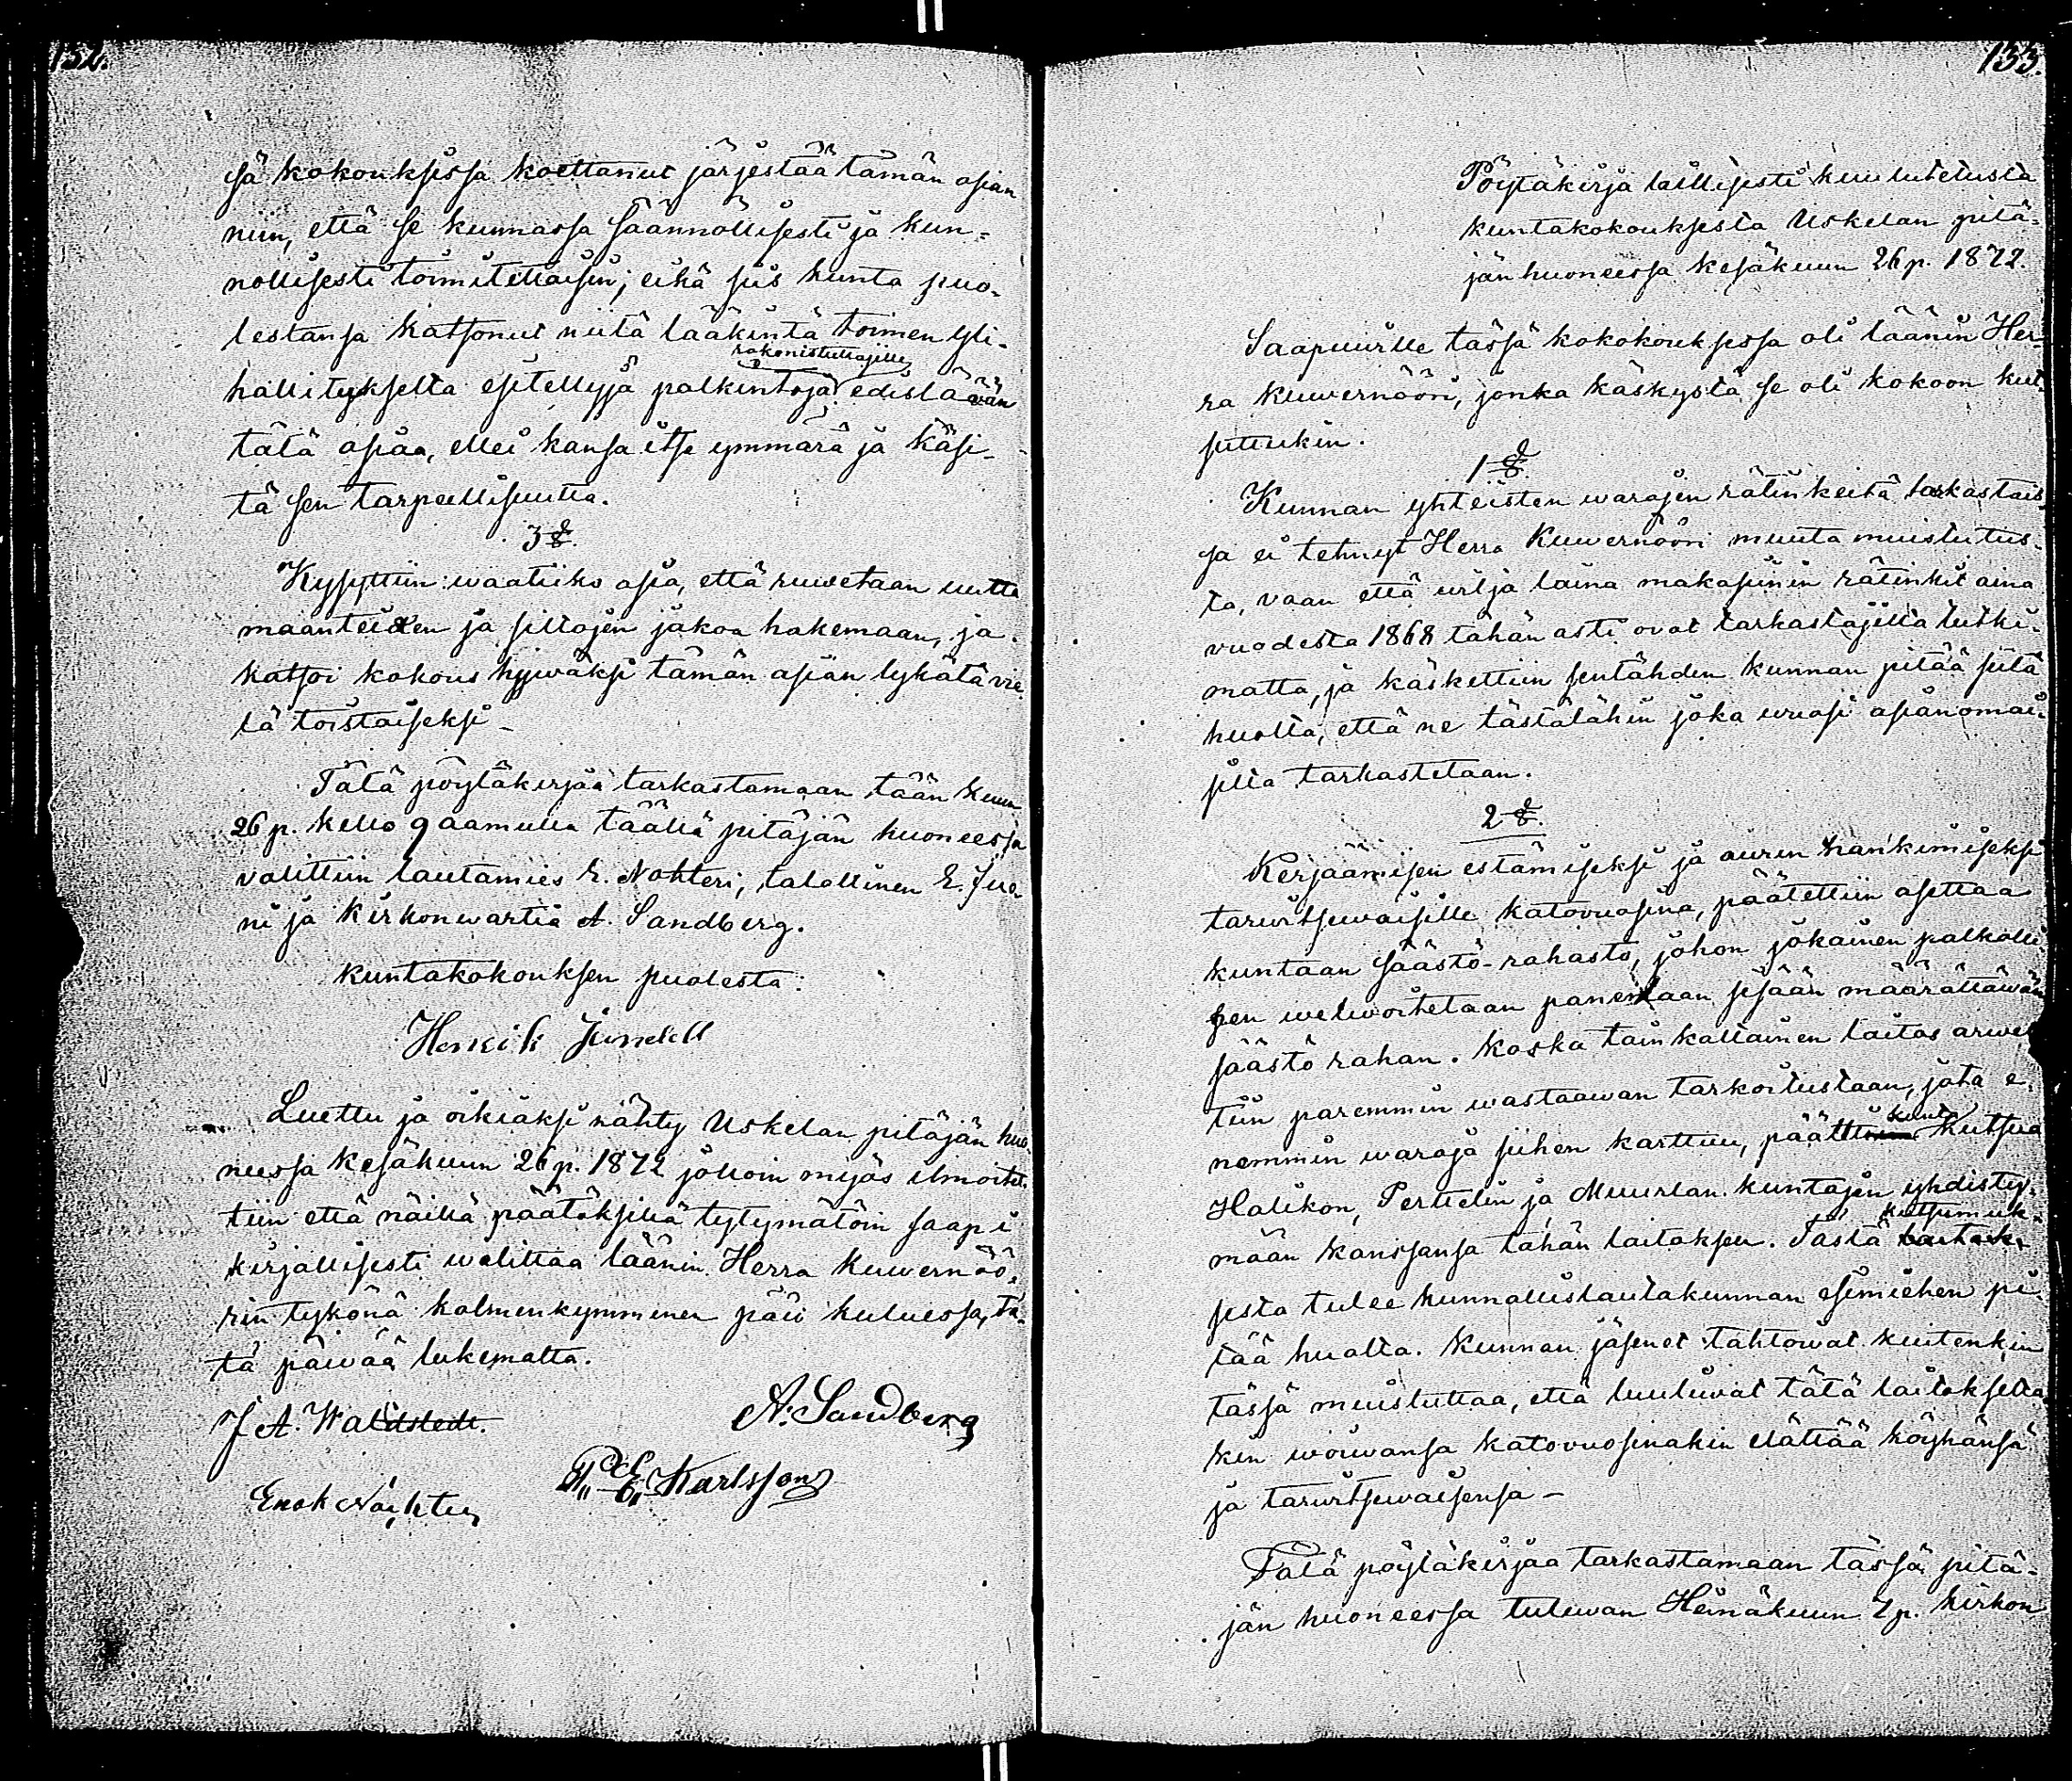 132.
sä kokouksissa koettanut järjestää tämän asian
niin, että se kunnassa säännöllisesti ja kun-
nollisesti toimitettaisiin; eikä siis kunta puo-
lestansa katsonut niitä lääkintä toimen yli-
rokonistuttajille
hallitukselta esitellyjä palkintoja edistävän
tätä asiaa, ellei kansa itse ymmärä ja käsi-
tä sen tarpeellisuutta.
3 §.
Kysyttiin: waatiiko asia, että ruwetaan uutta
maanteiden ja siltojen jakoa hakemaan, ja
katsoi kokous hywäksi tämän asian lykätä vie-
lä toistaiseksi –
Tätä pöytäkirjaa tarkastamaan tään kuun
26 p. kello 9 aamulla täällä pitäjän huoneessa
valittiin lautamies E. Nohteri, talollinen E. Jue-
ni ja Kirkonwartia A. Sandberg.
Kuntakokouksen puolesta:
Henrik Jundell
Luettu ja oikiaksi nähty Uskelan pitäjän huo-
neessa Kesäkuun 26 p. 1872 jolloin myös ilmoitet-
tiin että näillä päätöksillä tytymätöin saapi
kirjallisesti walittaa läänin Herra Kuwernöö-
rin tykönä kolmenkymmenen päiv kuluessa, tä-
tä päiwää lukematta.
J A. Waldstedt.
A. Sandberg
P. E. Karlsson
Enok
133.
Pöytäkirja laillisesti kuulutetusta
kuntakokouksesta Uskelan pitä-
jän huoneessa Kesäkuun 26 p. 1872.
Saapuwille tässä kokokouksessa oli läänin Her-
ra Kuwernööri, jonka käskystä se oli kokoon kut-
suttukin.
1 §.
Kunnan yhteisten warojen rätinkeitä tarkastais-
sa ei tehnyt Herra Kuwernööri muuta muistutus-
ta, vaan että wilja laina makasiinin rätinkit aina
vuodesta 1868 tähän asti ovat tarkastajilta tutki-
matta, ja käskettiin sentähden kunnan pitää siitä
huolta, että ne tästälähin joka wuosi asianomai-
silta tarkastetaan.
2 §.
Kerjäämisen estämiseksi ja awun hankimiseksi
tarwitsewaisille katovuosina, päätettiin asettaa
kuntaan säästö-rahasto, johon jokainen palkolli-
sen welwoitetaan panemaan sisään määrättäwän
säästö rahan. Koska tainkaltainen laitos arwel-
tiin paremmin wastaawan tarkoitustaan, jota e-
nemmin waroja siihen karttuu, päätti kunta kutsua
Halikon, Perttelin ja Muurlan kuntajen yhdisty-
kutsumuk-
mään kanssansa tähän laitoksen. Tästä
sesta tulee kunnallislautakunnan esimiehen pi-
tää huolta. Kunnan jäsenet tahtowat kuitenkin
tässä muistuttaa, että luulewat tätä laitoksetta-
kin woiwansa katovuosinakin elättää köyhänsä
ja tarwitsewaisensa –
Tätä pöytäkirjaa tarkastamaan tässä pitä-
jän huoneessa tulewan Heinäkuun 7 p. kirkon